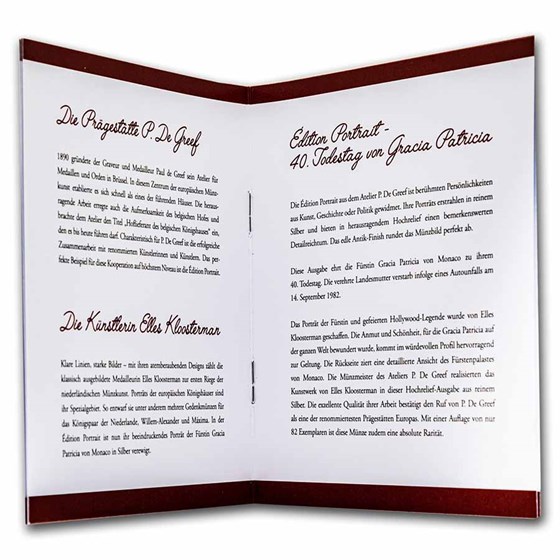 Die Prägestätte P. De Greef
1890 gründete der Graveur und Medailleur Paul de Greef sein Atelier für
Medaillen und Orden in Brüssel. In diesem Zentrum der europäischen Münz-
kunst etablierte es sich schnell als eines der führenden Häuser. Die herausra-
gende Arbeit erregte auch die Aufmerksamkeit des belgischen Hofes und
brachte dem Atelier den Titel „Hoflieferant des belgischen Königshauses“ ein,
den n es bis heute führen darf. Charakteristisch für P. De Greef ist die erfolgreiche
Zusammenarbeit mit renommierten Künstlerinnen und Künstlern. Das per-
fekte Beispiel für diese Kooperation auf höchstem Niveau ist die Edition Portrait.
Die Künstlerin Elles Kloosterman
Klare Linien, starke Bilder – mit ihren atemberaubenden Designs zählt die
klassisch ausgebildete Medailleurin Elles Kloosterman zur ersten Riege der
niederländischen Münzkunst. Porträts der europäischen Königshäuser sind
ihr Spezialgebiet. So entwarf sie unter anderem mehrere Gedenkmünzen für
das Königspaar der Niederlande, Willem-Alexander und Máxima. In der
Édition Portrait ist nun ihr beeindruckendes Porträt der Fürstin Gracia
Patricia von Monaco in Silber verewigt.
Édition Portrait -
40. Todestag von Gracia Patricia
Die Édition Portrait aus dem Atelier P. De Greef ist berühmten Persönlichkeiten
aus Kunst, Geschichte oder Politik gewidmet. Ihre Porträts erstrahlen in reinem
Silber und bieten in herausragendem Hochrelief einen bemerkenswerten
Detailreichtum. Das edle Antik-Finish rundet das Münzbild perfekt ab.
Diese Ausgabe ehrt die Fürstin Gracia Patricia von Monaco zu ihrem
40. Todestag. Die verehrte Landesmutter verstarb infolge eines Autounfalls am
14. September 1982.
Das Porträt der Fürstin und gefeierten Hollywood-Legende wurde von Elles
Kloosterman geschaffen. Die Anmut und Schönheit, für die Gracia Patricia auf
der ganzen Welt bewundert wurde, kommt im würdevollen Profil hervorragend
zur Geltung. Die Rückseite ziert eine detaillierte Ansicht des Fürstenpalastes
von Monaco. Die Münzmeister des Ateliers P. De Greef realisierten das
Kunstwerk von Elles Kloosterman in dieser Hochrelief-Ausgabe aus reinem
Silber. Die exzellente Qualität ihrer Arbeit bestätigt den Ruf von P. De Greef
als eine der renommiertesten Prägestätten Europas. Mit einer Auflage von nur
82 Exemplaren ist diese Münze zudem eine absolute Rarität.